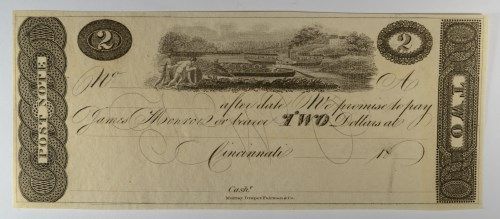 2 2
No A
after date We promise to pay
James Monroe or bearer TWO Dollars at
Cincinnati 18
Cash.r
Murray, Draper Fairman & Co.
POST NOTE
TWO